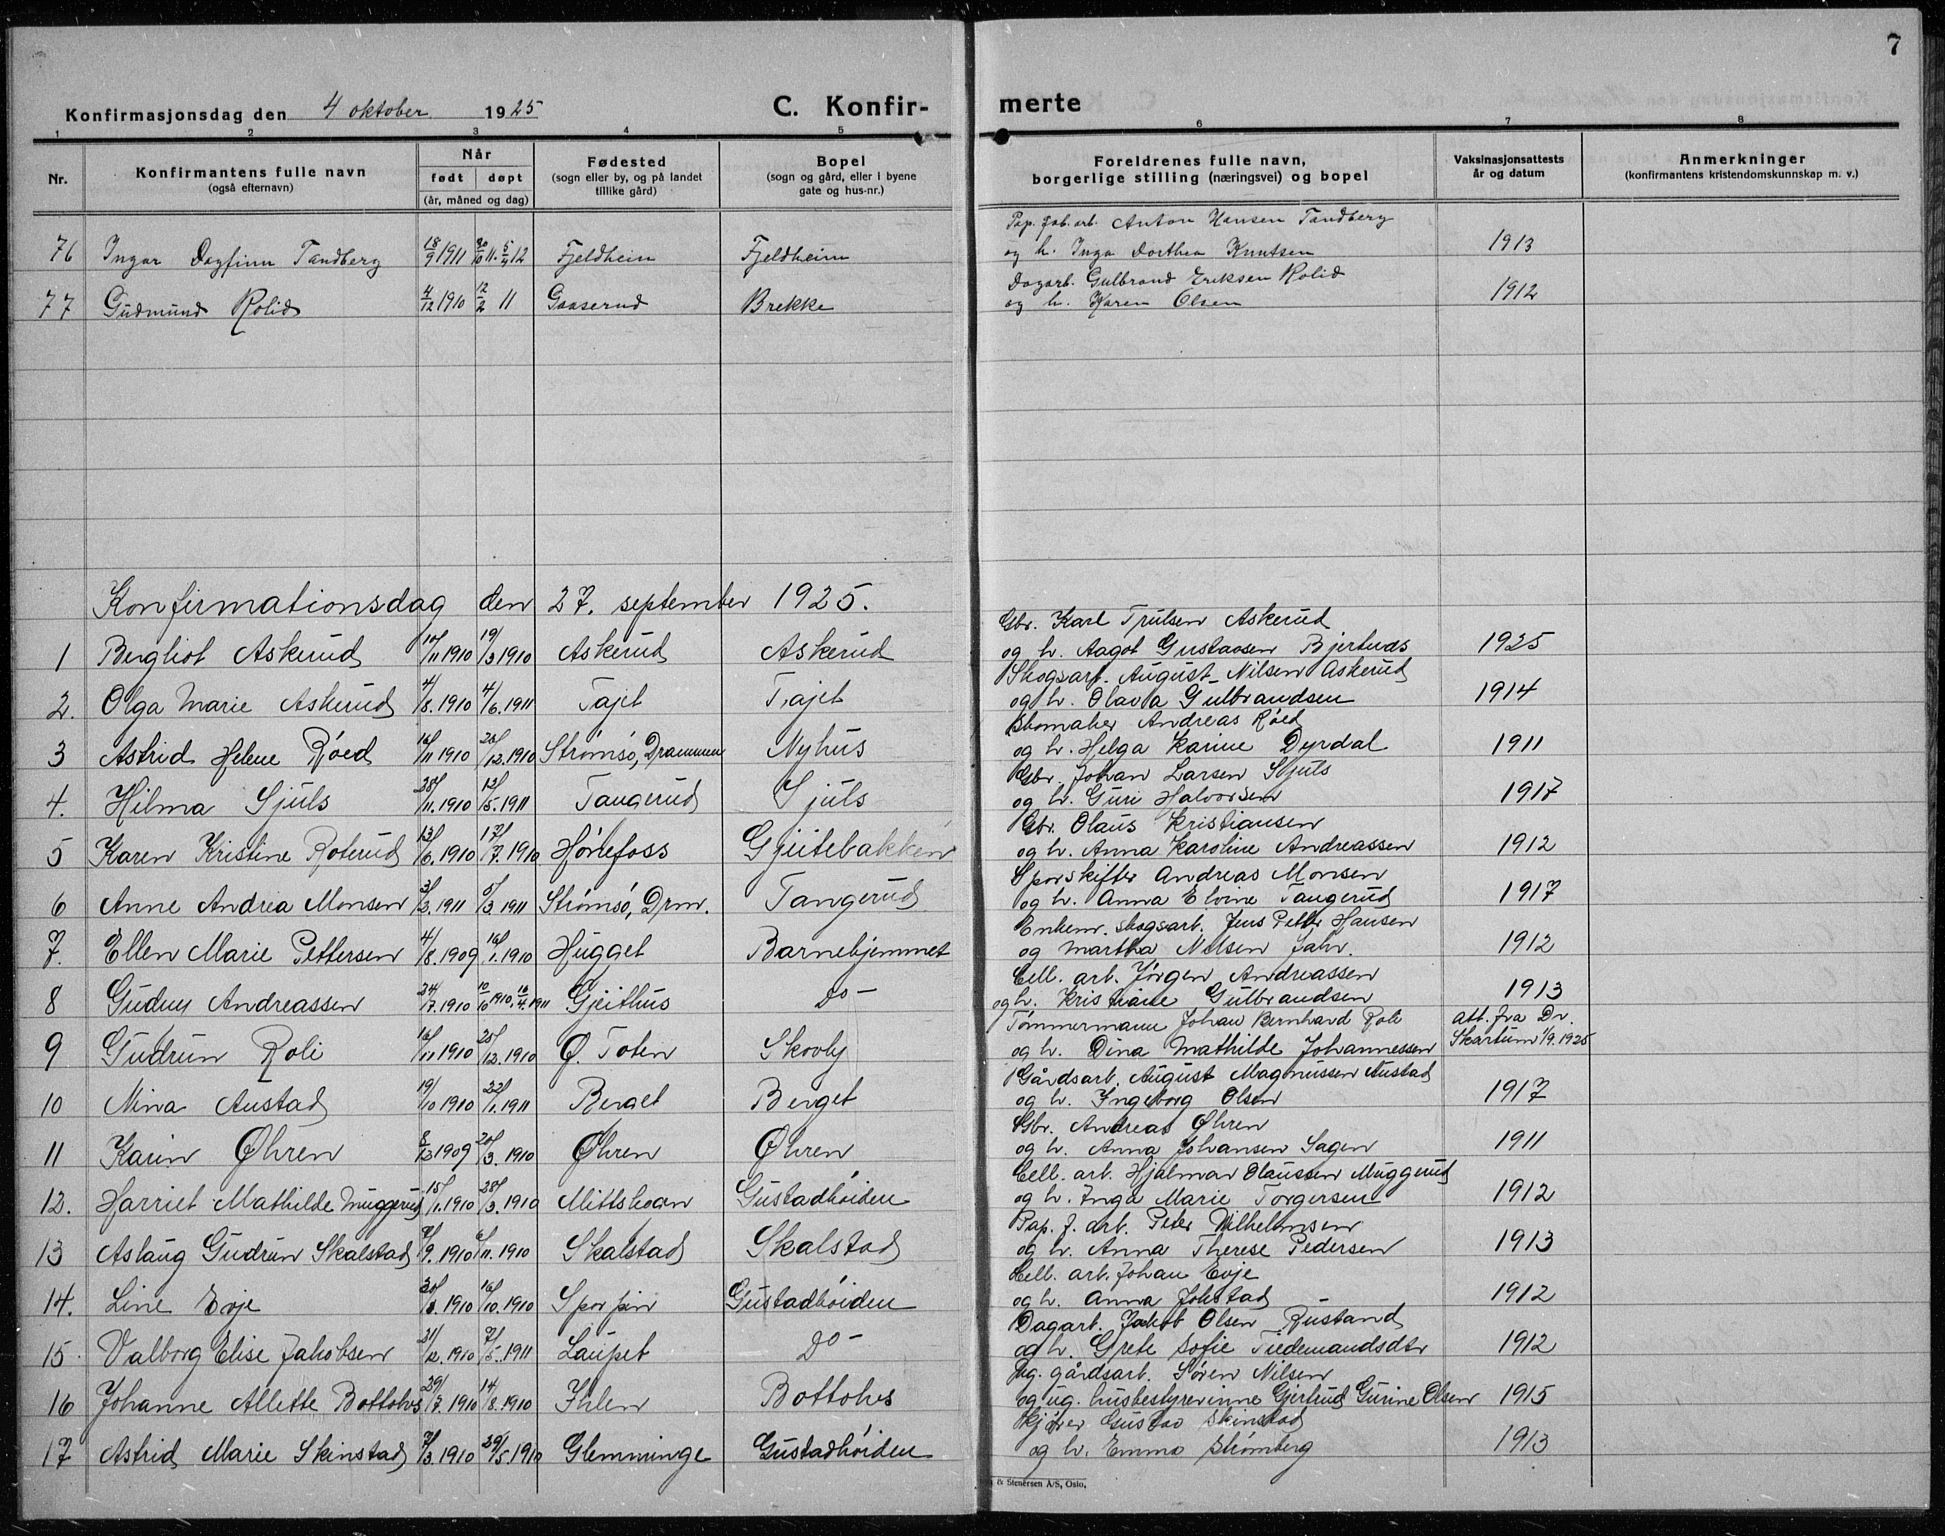 7
Konfirmasjonsdag den 4 oktober 1925 C. Konfir- merte
1 2 3 4 5 6 7 8
Nr. Konfirmantens fulle navn (også efternavn) Når født døpt (år, måned og dag) Fødested (sogn eller by, og på landet tillike gård) Bopel (sogn og gård, eller i byene gate og hus-nr.) Foreldrenes fulle navn, borgerlige stilling (næringsvei) og bopel Vaksinasjonsattests år og datum Anmerkninger (konfirmantens kristendomskunnskap m. v.)
Pap. fab. arb. Anton Hansen Tandberg
76 Ingar Dagfinn Tandberg 18/9 1911 30/10 11. 5/4 12 Fjeldheim Fjeldheim og h. Inga Dorthea Knutsen 1913
Dagarb. Gulbrand Eriksen Rolid
77 Gudmund Rolid 4/12 1910 12/2 11 Gaaserud Brekke og h. Karen Olsen 1912
Konfirmationsdag den 27. september 1925.
Gbr. Karl Trulsen Askerud
1 Bergliot Askerud 10/11 1910 19/3 1910 Askerud Askerud og h. Aagot Gustavsen Bjertnds 1925
Skogsarb. August Nilsen Askerud
2. Olga Marie Askerud 4/8. 1910 4/6. 1911 Tajet Tajet og h. Olava Gulbrandsen 1914
Skomaker Andreas Røed
3 Astrid Helene Røed 16/11 1910 26/12. 1910 Strømsø, Drammen Nyhus og h. Helga Karine Dyrdal 1911
Gbr. Johan Larsen Sjuls
4. Hilma Sjuls 28/11. 1910 13/5. 1911 Tangerud Sjuls og h. Guri Halvorsen 1917
Gbr. Olaus Kristiansen
5 Karen Kristine Roterud 13/6. 1910 17/7. 1910 Hønefoss Gjeitebakken og h. Anna Karoline Andreassen 1912
Sporskifter Andreas Monsen
6 Anne Andrea Monsen 3/3. 1911 5/3. 1911 Strømsø, Drm. Tangerud og h. Anna Elvine Tangerud 1917
Enkem. skogsarb. Jens Petter Hansen
7. Ellen Marie Pettersen 4/8. 1909 16/1. 1910 Hugget Barnehjemmet og Martha Nilsen Jahr. 1912
Cell. arb. Jørgen Andreassen
8 Gudny Andreassen 24/7. 1910 10/10 1910. 16/4. 1911 Gjeithus do - og h. Kristiane Gulbrandsen 1913
Tømmermann Johan Bernhard Roli att. fra Dr.
9 Gudrun Roli 16/11 1910 25/12. 1910 Ø. Toten Skovly og h. Dina Mathilde Johannessen Skartum 1/9. 1925
Gårdsarb. August Magnussen Austad
10 Nina Austad 19/10 1910 22/1. 1911 Berget Berget og h. Ingeborg Olsen 1917
Gbr. Andreas Øhren
11 Karin Øhren 8/12 1909 20/3. 1910 Øhren Øhren og h. Anna Johansen Sagen 1911
Cell. arb. Hjalmar Olaussen Muggerud
12. Harriet Mathilde Muggerud 15/1. 1910 28/3. 1910 Mittskogen Gustadhøiden og h. Inga Marie Torgersen 1912
Pap. f. arb. Peter Vilhelmsen
13 Aslaug Gudrun Skalstad /9. 1910 6/11. 1910 Skalstad Skalstad og h. Anna Therese Pedersen 1913
Cell. arb. Johan Evje
14. Line Evje 30/8. 1910 16/10. 1910 Sporpin Gustadhøiden og h. Anna Jokstad 1912
Dagarb. Jakob Olsen Rustand
15. Valborg Elise Jakobsen 31/12. 1910 7/5. 1911 Laupet do - og h. Grete Sofie Tiedemandsdtr 1912
Ug. gårdsarb. Søren Nilsen
16 Johanne Allette Bottolvs 29/7. 1910 14/8. 1910 Ihlen Bottolvs og ug. husbestyrerinne Gjertrud Gurine Olsen 1915
Kjører Gustav Skinstad
17 Astrid Marie Skinstad /3. 1910 29/5. 1910 Glemminge Gustadhøiden og h. Emma Strømberg 1913
& Stenersen A/S, Oslo,